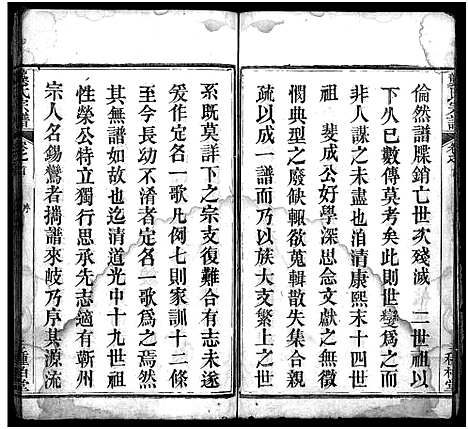 倫然譜牒銷亡世次殘滅　二世祖以
下久已數傳莫考矣此則世變爲之而
非人謀之未盡也洎清康熙末十四世
祖　斐成公好學深思念文獻之無
惆典型之廢缺輒欲蒐輯散失集合親
疏以成一譜而乃以族大支繁上之世
系既莫詳下之宗支復難合有志未遂
爰作定名一歌凡例七則家訓十二條
至今長幼不淆者定名一歌爲之焉然
其無譜如故也迄清道光中十九世祖
性榮公特立獨行思承先志適有蘄州
宗人名錫鸞者攜譜來岐乃序其源流
氏宗譜
卷之首